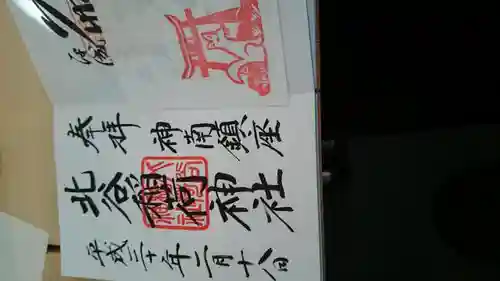 奉拝 神南鎮座
北谷稲荷神社
平成三十年二月十八日